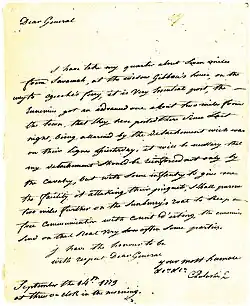 Dear General
I have take my quarter about Seven miles
from Savanah, at the widow Gibbon's house on the
way to ogeeche's ferry, it is very hewlait post, the
Ennemies got an advanced one about two miles from
the town, that they been posted there Since last
night, being allarmed by the detachment wich was
on their lignes yesterday. it will be necessary that
my detachment Should be reinforced not only by
the Cavalry, but with some infantry to give me
the facility of attaking their piquet, I shall parade
two miles further on the Sunbury's road to keep a
free communication with
Send on their Real very few after some parties.
I have the honnor to be
with respect dear General
your most humble
C Pulaski
September the 14th 1779
at three oclok in the morning.